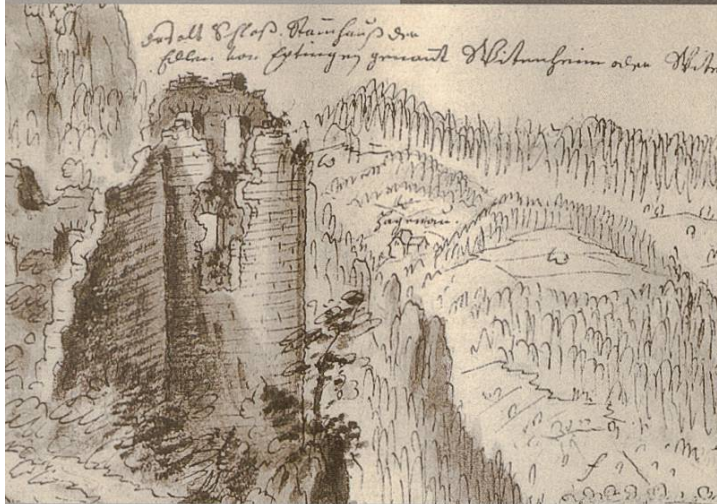 das alt Schloß Stammhauß der
Edlen von Eptingen genant Witenheim oder Wite
Hagenau.
w
w